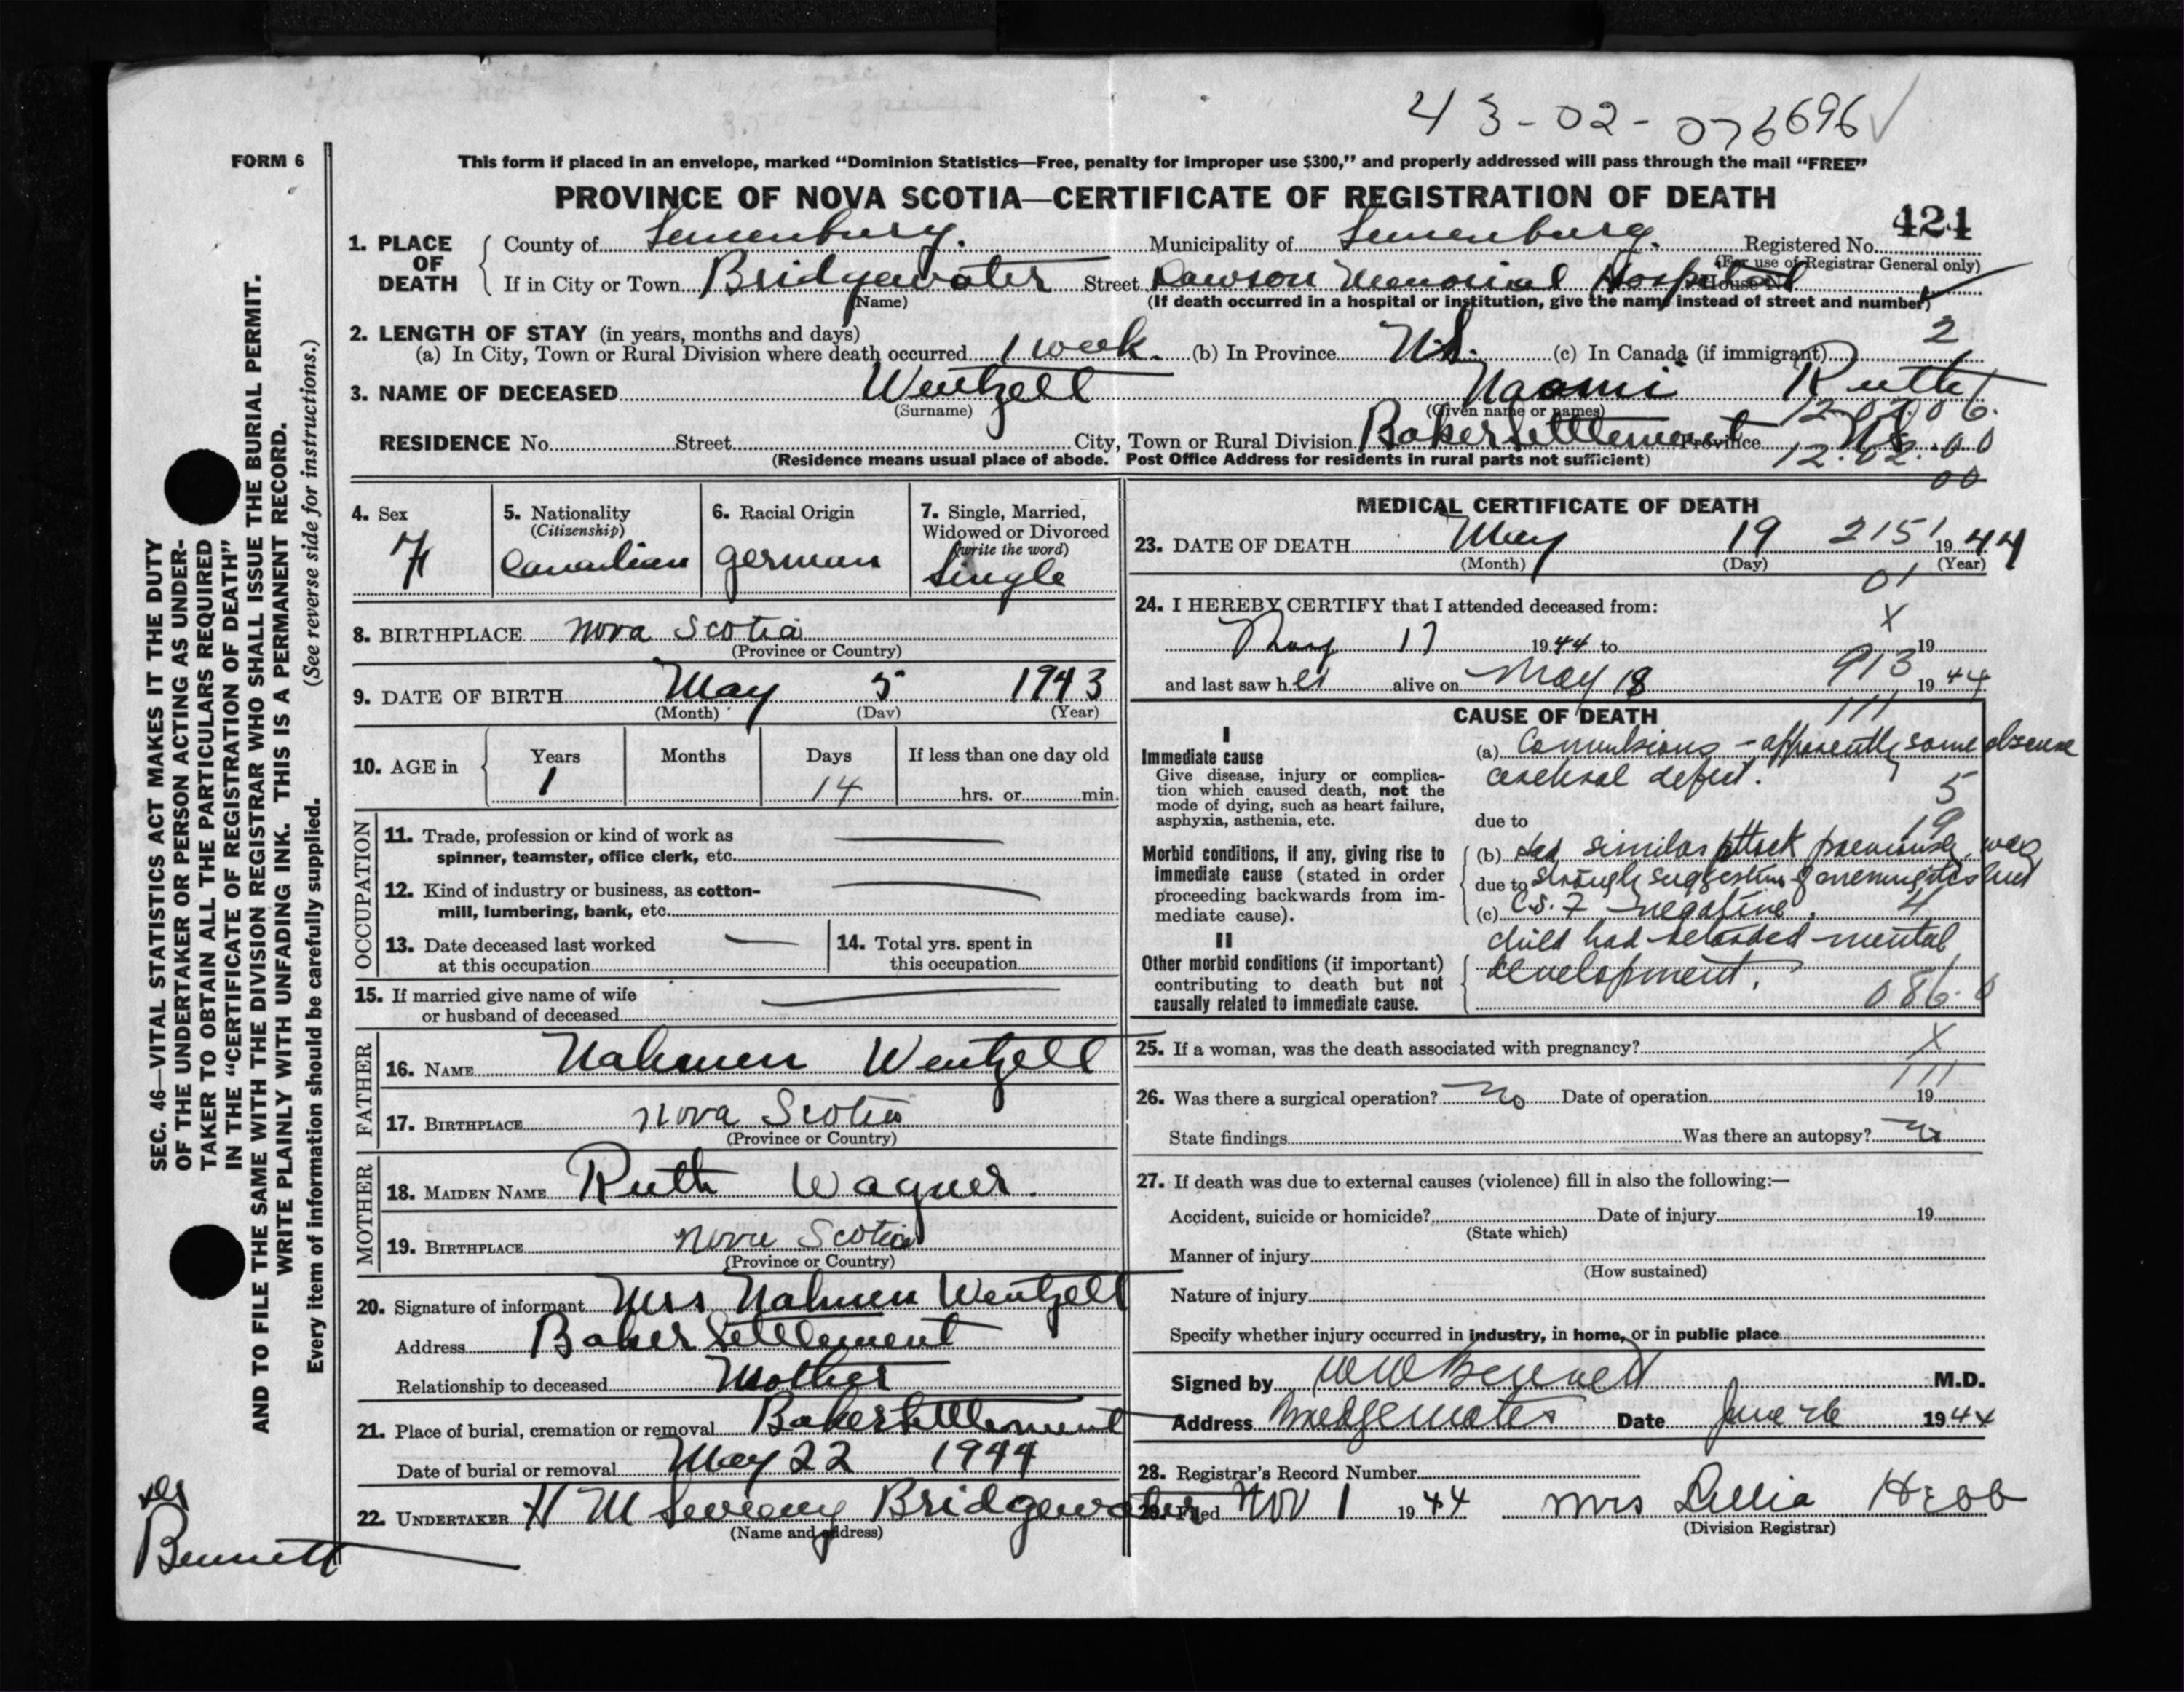 43-02-076696 ✓
FORM 6
This form if placed in an envelope, marked "Dominion Statistics—Free, penalty for improper use $300," and properly addressed will pass through the mail "FREE"
PROVINCE OF NOVA SCOTIA—CERTIFICATE OF REGISTRATION OF DEATH
424
1. PLACE OF DEATH
County of Lunenburg. Municipality of Lunenburg. Registered No.
(For use of Registrar General only)
If in City or Town Bridgewater Street Dawson Memorial Hospital House No.
(Name) (If death occurred in a hospital or institution, give the name instead of street and number)
2. LENGTH OF STAY (in years, months and days)
(a) In City, Town or Rural Division where death occurred 1 week. (b) In Province N.S. (c) In Canada (if immigrant) 2
3. NAME OF DECEASED Wentzell Naomi Ruth
(Surname) (Given name or names)
12.02.06.
RESIDENCE No. Street City, Town or Rural Division Baker Settlement Province N.S.
12.02.00
(Residence means usual place of abode. Post Office Address for residents in rural parts not sufficient)
00
4. Sex
F
5. Nationality
(Citizenship)
Canadian
6. Racial Origin
German
7. Single, Married, Widowed or Divorced
(write the word)
Single
8. BIRTHPLACE Nova Scotia
(Province or Country)
9. DATE OF BIRTH May 5 1943
(Month) (Day) (Year)
10. AGE in Years Months Days If less than one day old
1 14 hrs. or min.
OCCUPATION
11. Trade, profession or kind of work as
spinner, teamster, office clerk, etc.
12. Kind of industry or business, as cotton-
mill, lumbering, bank, etc.
13. Date deceased last worked
at this occupation
14. Total yrs. spent in
this occupation
15. If married give name of wife
or husband of deceased
FATHER
16. NAME Nahmen Wentzell
17. BIRTHPLACE Nova Scotia
(Province or Country)
MOTHER
18. MAIDEN NAME Ruth Wagner.
19. BIRTHPLACE Nova Scotia
(Province or Country)
20. Signature of informant Mrs Nahmen Wentzell
Address Baker Settlement
Relationship to deceased Mother
21. Place of burial, cremation or removal Baker Settlement
Date of burial or removal May 22 1944
22. UNDERTAKER H M Bridgewater
(Name and address)
MEDICAL CERTIFICATE OF DEATH
23. DATE OF DEATH May 19 2151 1944
(Month) (Day) (Year)
01
24. I HEREBY CERTIFY that I attended deceased from:
X
May 17 1944 to 19
and last saw her alive on May 18 913 1944
CAUSE OF DEATH 111
I
Immediate cause
Give disease, injury or complica-
tion which caused death, not the
mode of dying, such as heart failure,
asphyxia, asthenia, etc.
(a) Convulsions - apparently some obscure
cerebral defect.
5
due to
19
Morbid conditions, if any, giving rise to
immediate cause (stated in order
proceeding backwards from im-
mediate cause).
(b) Had similar attack previously, was
due to strongly suggestive of meningitis but
(c) C.S.F negative. 4
child had retarded mental
development.
II
Other morbid conditions (if important)
contributing to death but not
causally related to immediate cause.
086.0
25. If a woman, was the death associated with pregnancy? X
111
26. Was there a surgical operation? No Date of operation 19
State findings Was there an autopsy? No
27. If death was due to external causes (violence) fill in also the following:—
Accident, suicide or homicide? Date of injury 19
(State which)
Manner of injury
(How sustained)
Nature of injury
Specify whether injury occurred in industry, in home, or in public place
Signed by W W Bennett M.D.
Address Bridgewater Date June 26 1944
28. Registrar's Record Number
29. Filed Nov 1 1944 Mrs Lillia Hebb
(Division Registrar)
SEC. 46—VITAL STATISTICS ACT MAKES IT THE DUTY
OF THE UNDERTAKER OR PERSON ACTING AS UNDER-
TAKER TO OBTAIN ALL THE PARTICULARS REQUIRED
IN THE "CERTIFICATE OF REGISTRATION OF DEATH"
AND TO FILE THE SAME WITH THE DIVISION REGISTRAR WHO SHALL ISSUE THE BURIAL PERMIT.
WRITE PLAINLY WITH UNFADING INK. THIS IS A PERMANENT RECORD.
Every item of information should be carefully supplied. (See reverse side for instructions.)
Dr
Bennett